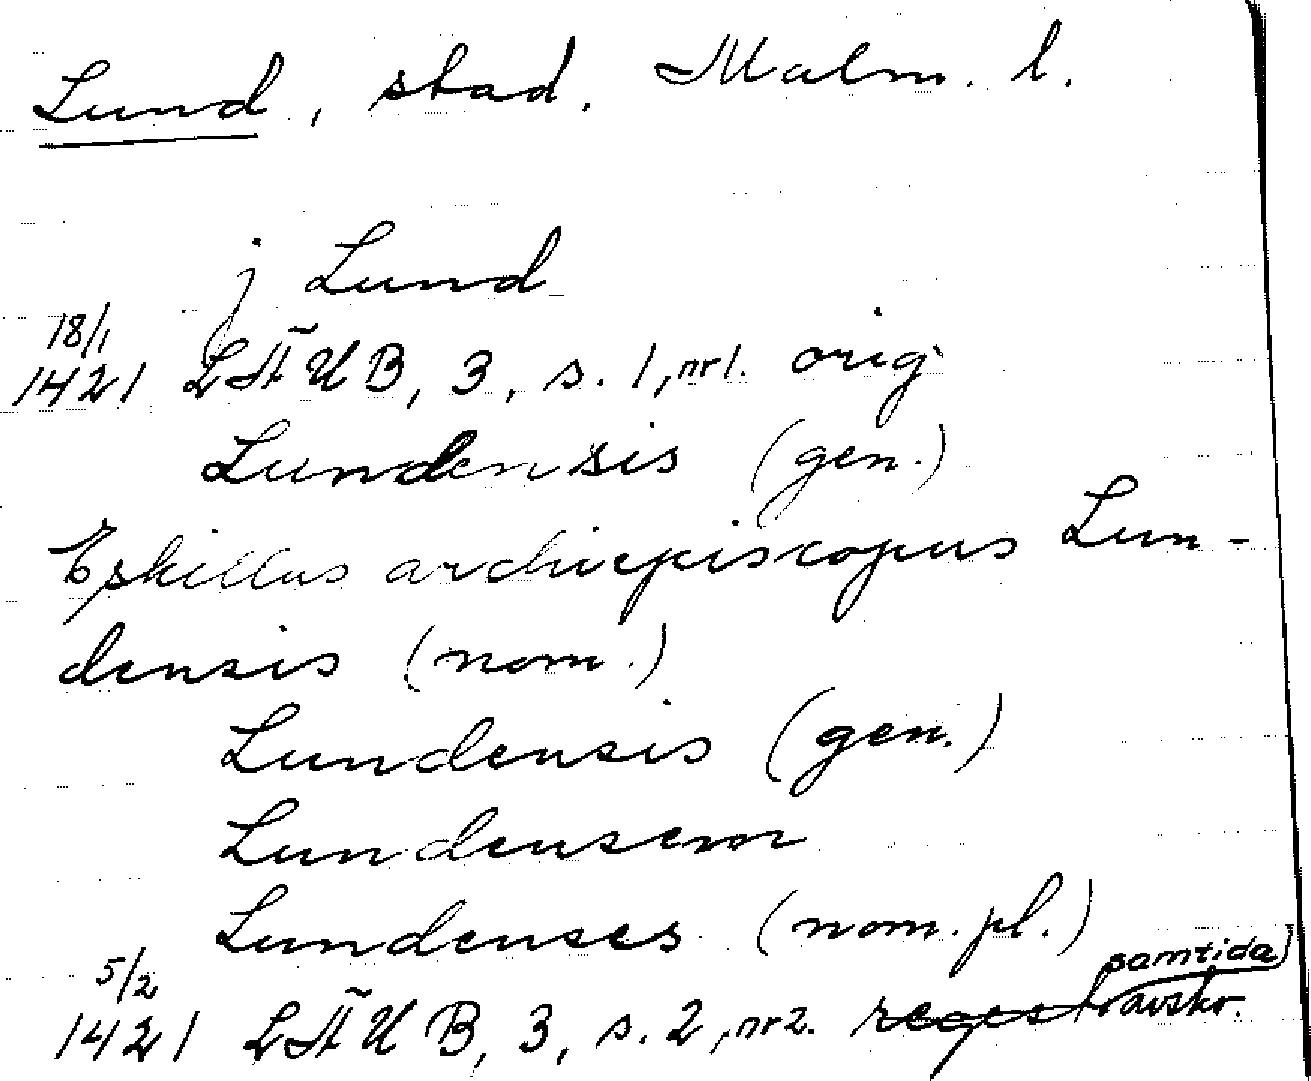 Lund, stad. Malm. l.
j Lund
18/1
1421 LÄUB, 3, s. 1, nr 1. orig.
Lundensis (gen.)
Eskillus archiepiscopus Lun-
densis (nom.)
Lundensis (gen.)
Lundensem
Lundenses (nom. pl.)
5/2 samtida
1421 LÄUB, 3, s. 2, nr 2. avskr.